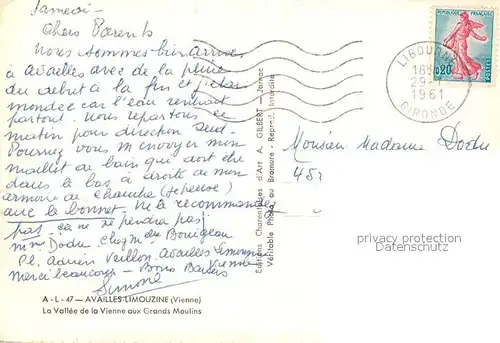 Samedi -
Chers Parents
Nous sommes bien arrivés
à availles avec de la pluie
du début à la fin et
car l'eau rentrait
partout. Nous repartons ce
matin pour direction Sud.
Pourriez vous m'envoyer mon
maillot de bain qui doit être
dans le bas à droite de mon
armoire de chambre
avec le bonnet. Ne le recommandez
pas. ça ne se perdra pas
Mme Dodu chez Mr Bourgeau
Pl. Adrien Veillon. Availles Limouzine
Vienne
Merci beaucoup - Bons Baisers
Simone
A - L - 47 — AVAILLES-LIMOUZINE (Vienne)
La Vallée de la Vienne aux Grands Moulins
Editions Charentaises d'Art A. GILBERT — Jarnac
Véritable Photo au Bromure - Reprod. Interdite
POSTES
FRANÇAISE
0,20
LIBOURNE
18
29-
1961
GIRONDE
Monsieur Madame Dodu
privacy protection
Datenschutz